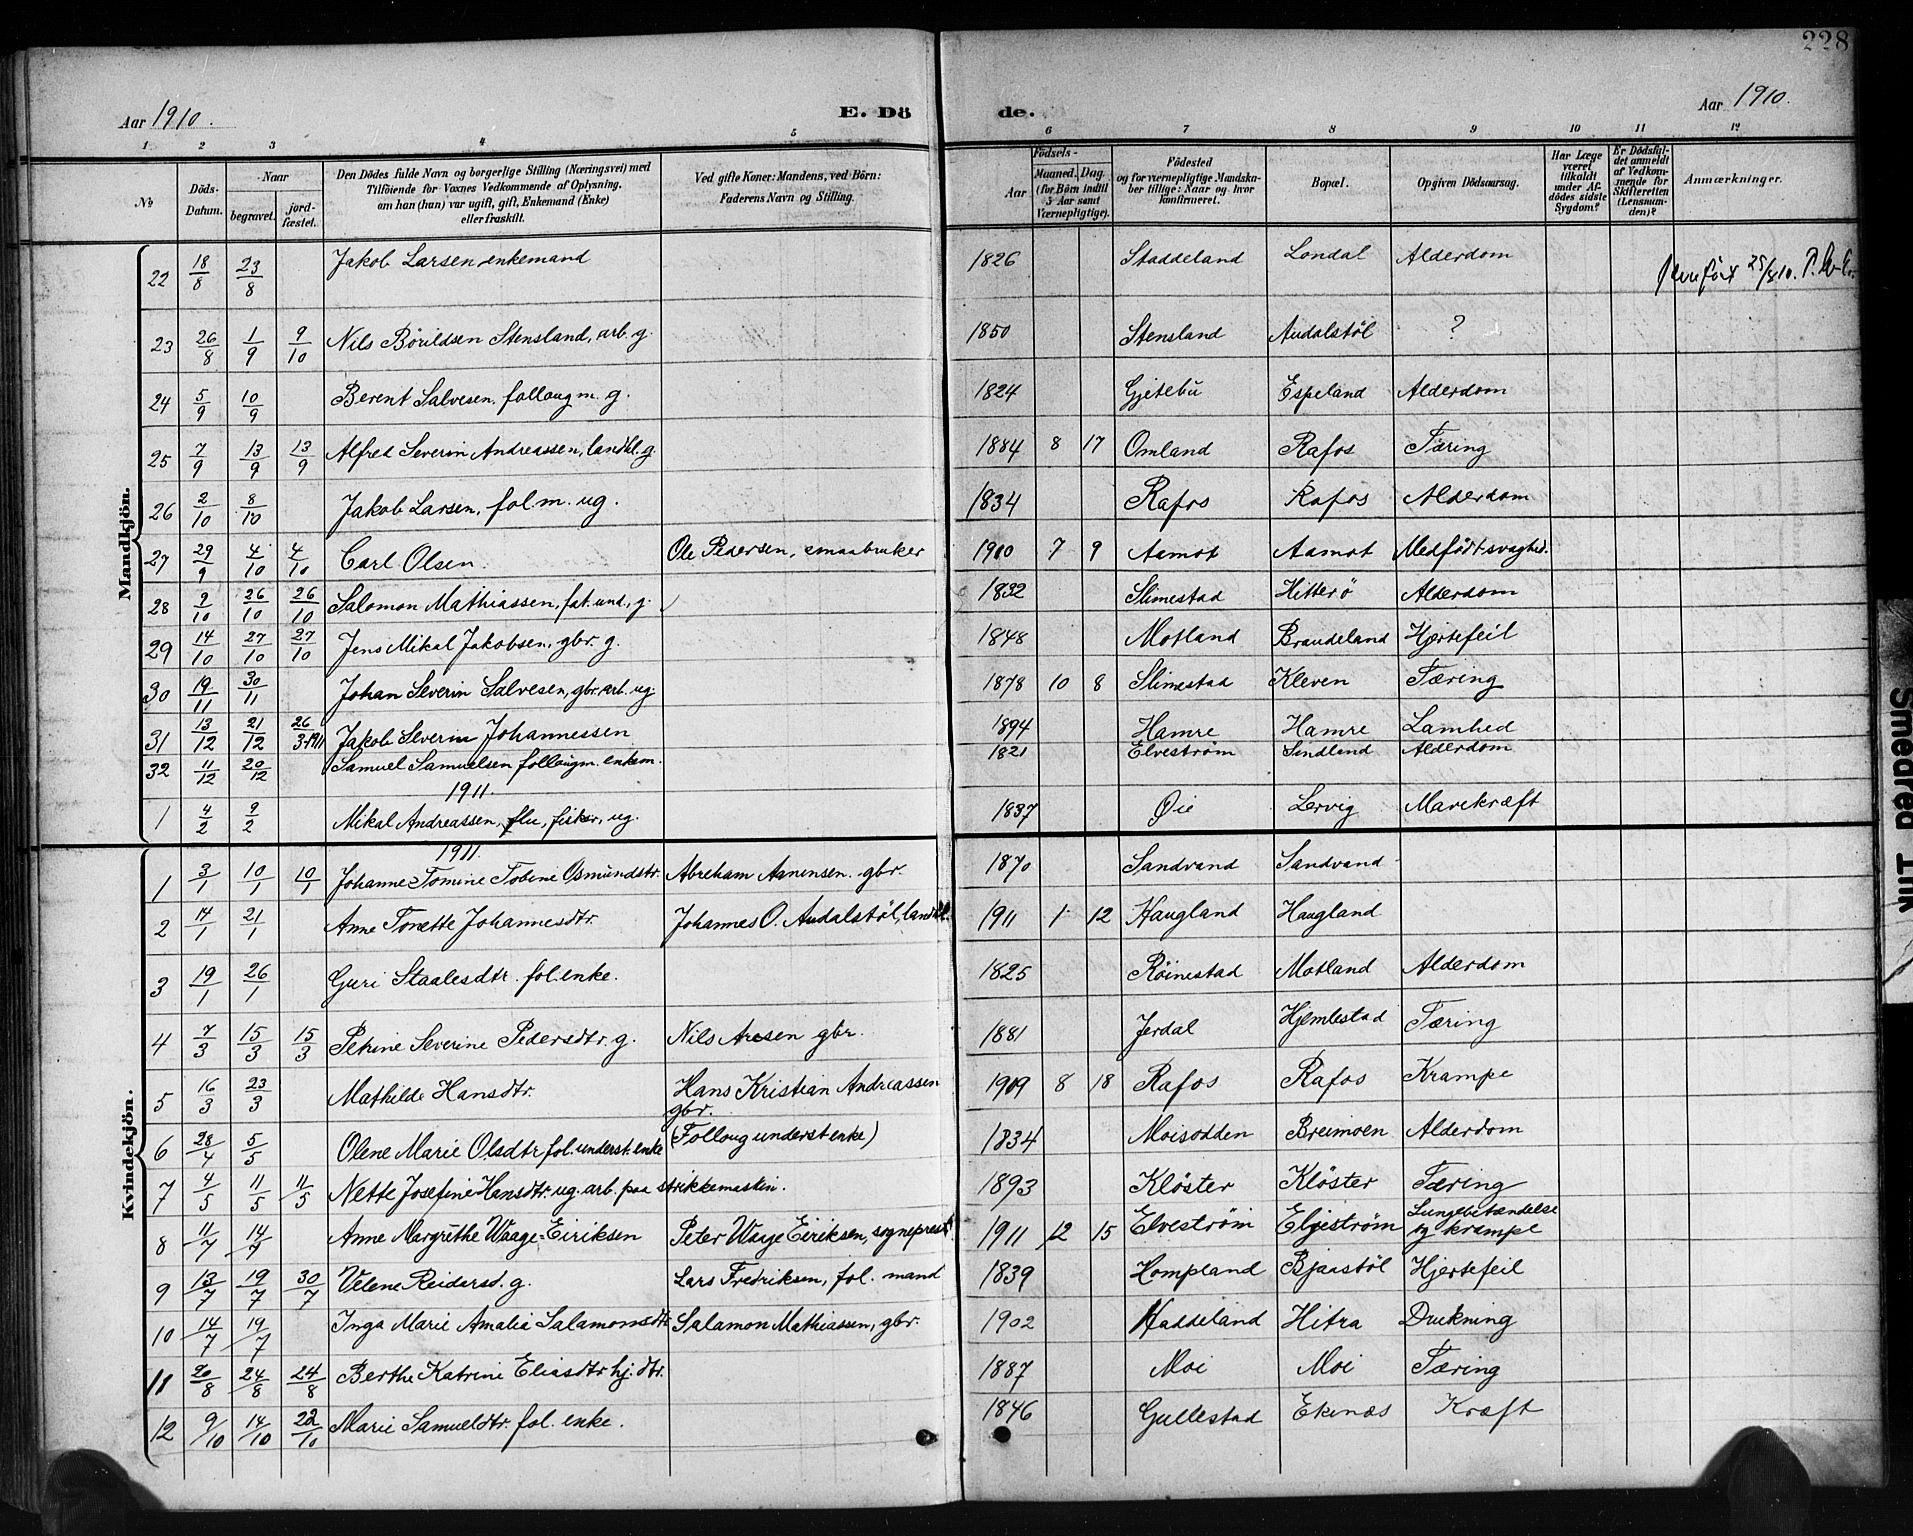 228
Aar 1910.
E. Dö
de.
Aar 1910.
1 2 3 4 5 6 7 8 9 10 11 12
No
Döds-
Datum.
Naar
begravet.
jord-
fæstet.
Den Dödes fulde Navn og borgerlige Stilling (Næringsvei) med
Tilföiende for Voxnes Vedkommende af Oplysning,
om han (hun) var ugift, gift, Enkemand (Enke)
eller fraskilt.
Ved gifte Koner: Mandens, ved Börn:
Faderens Navn og Stilling.
Födsels-
Aar
Maaned. Dag.
(for Börn indtil
5 Aar samt
Værnepligtige).
Födested
og for værnepligtige Mandska-
ber tillige: Naar og hvor
konfirmeret.
Bopæl.
Opgiven Dödsaarsag.
Har Læge
været
tilkaldt
under Af-
dödes sidste
Sygdom?
Er Dödsfal-
det anmeldt
af Vedkom-
mende for
Skifteretten
(Lensmam-
den)?
Anmærkninger.
Mandkjön.
22 18/8 23/8 Jakob Larsen enkemand 1826 Staddeland Londal Alderdom 25/8 10.
23 26/8 1/9 9/10 Nils Börildsen Stensland, arb. g. 1850 Stensland Audalstöl ?
24 5/9 10/9 Berent Salvesen, follougm. g. 1824 Gjetebu Espeland Alderdom
25 7/9 13/9 13/9 Alfred Severin Andreassen, landhl. g. 1884 8 17 Omland Rafos Tæring
26 2/10 8/10 Jakob Larsen, fol.m. ug. 1834 Rafos Rafos Alderdom
27 29/9 4/10 4/10 Carl Olsen. Ole Pedersen, smaabruker 1910 7 9 Aamot Aamot Medfödt svaghed.
28 9/10 26/10 26/10 Salomon Mathiassen, fat. und., g. 1832 Slimestad Hitterö Alderdom
29 14/10 27/10 27/10 Jens Mikal Jakobsen, gbr. g. 1848 Motland Braudeland Hjertefeil
30 19/11 30/11 Johan Severin Salvesen, gbr. arb. ug. 1878 10 8 Slimestad Kleven Tæring
31 13/12 21/12 26/3-1911 Jakob Severin Johannessen 1894 Hamre Hamre Lamhed
32 11/12 20/12 Samuel Samuelsen follougm. enkem. 1821 Elveström Sindland Alderdom
1911.
1 4/2 9/2 Mikal Andreassen, flu, fisker, ug. 1837 Öie Lervig Mavekræft
Kvindekjön.
1911.
1 3/1 10/1 10/1 Johanne Tomine Tobine Osmundstr. Abreham Asnensen. gbr. 1870 Sandvand Sandvand
2 14/1 21/1 Anne Tonette Johannesdtr. Johannes O. Audalstöl, landhl. 1911 1 12 Haugland Haugland
3 19/1 26/1 Guri Staalesdtr. fol. enke. 1825 Röinestad Motland Alderdom
4 7/3 15/3 15/3 Petrine Severine Pedersdtr. g. Nils Aresen gbr. 1881 Jerdal Hjemlestad Tæring
5 16/3 23/3 Mathilde Hansdtr. Hans Kristian Andreassen
gbr. 1909 8 18 Rafos Rafos Krampe
6 28/4 5/5 Olene Marie Olsdtr fol. underst. enke (Folloug underst enke) 1834 Moisodden Breimoen Alderdom
7 4/5 11/5 11/5 Nette Josefine Hansdtr. ug. arb. paa strikkemaskin. 1893 Klöster Klöster Tæring
8 11/7 14/7 Anne Margrethe Waage-Eiriksen Peter Waage Eiriksen, sogneprest 1911 12 15 Elveström Elveström Lungebetændelse
og krampe
9 13/7 19/7 30/7 Velene Reidersd. g. Lars Fredriksen, fol. mand 1839 Hompland Bjaastöl Hjertefeil
10 14/7 19/7 Inga Marie Amalia Salamonsdtr. Salamon Mathiassen, gbr. 1902 Haddeland Hitra Drukning
11 20/8 24/8 24/8 Berthe Katrine Eliasdtr hj. dtr. 1887 Moi Moi Tæring
12 9/10 14/10 22/10 Marie Samueldtr. fol. enke. 1846 Gullestad Ekenæs Kræft
Smedred Link